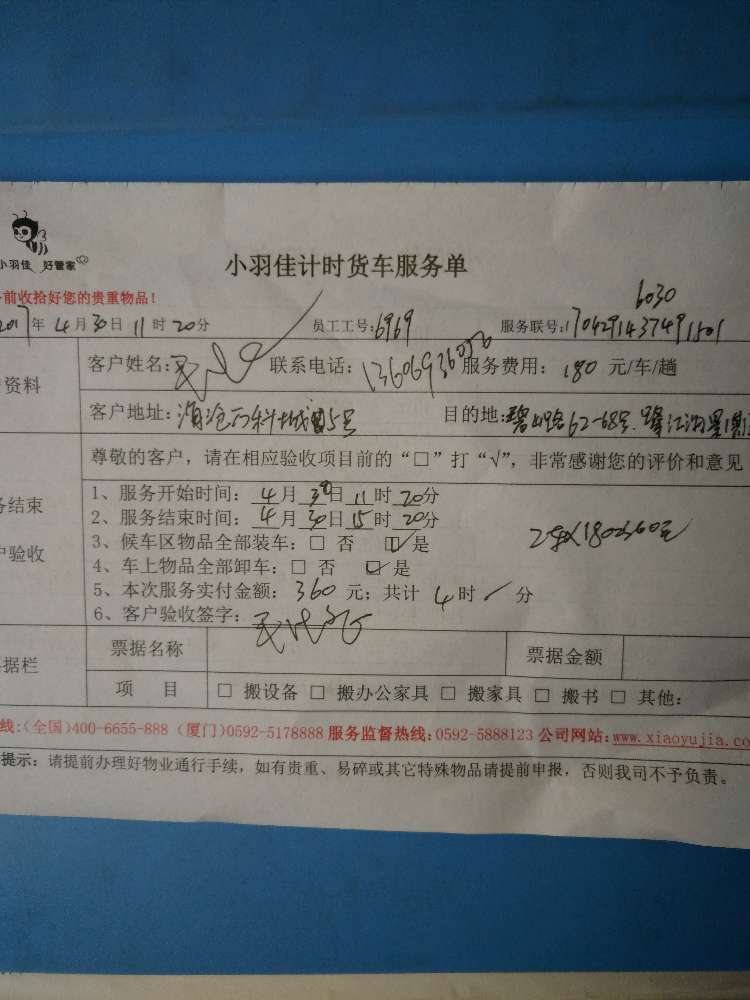 小羽佳 好管家
小羽佳计时货车服务单
前收拾好您的贵重物品！
6030
2017年4月30日11时20分 员工工号:6969 服务联号:1704291437491501
资料
客户姓名: 联系电话: 服务费用: 180 元/车/趟
客户地址: 5号 目的地: 碧山路62-68号.
尊敬的客户，请在相应验收项目前的“□”打“√”，非常感谢您的评价和意见
务结束
户验收
1、服务开始时间: 4月30日11时20分
2、服务结束时间: 4月30日15时20分
3、候车区物品全部装车: □ 否 ☑是
2车x180=360元
4、车上物品全部卸车: □ 否 ☑是
5、本次服务实付金额: 360 元; 共计 4时 / 分
6、客户验收签字:
据栏
票据名称 票据金额
项 目 □ 搬设备 □ 搬办公家具 □ 搬家具 □ 搬书 □ 其他:
线:(全国)400-6655-888 (厦门)0592-5178888 服务监督热线:0592-5888123 公司网站:www.xiaoyujia.co
提示: 请提前办理好物业通行手续，如有贵重、易碎或其它特殊物品请提前申报，否则我司不予负责。